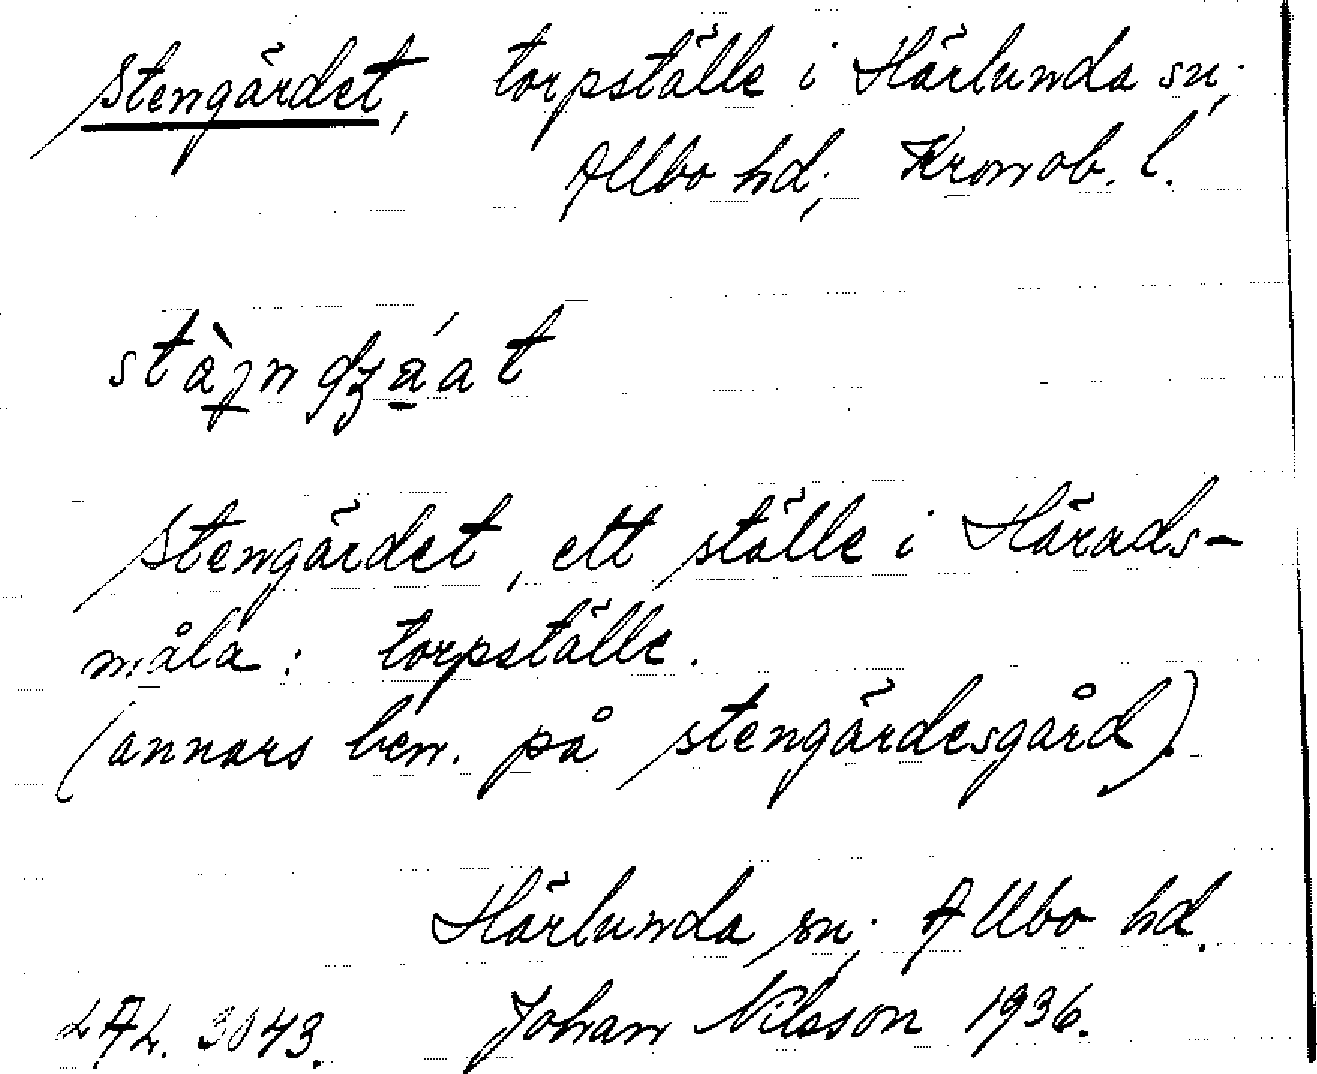 Stengärdet, torpställe i Härlunda sn,
Allbo hd, Kronob. l.
Stengärdet, ett ställe i Härads-
måla: torpställe.
(annars ben. på stengärdesgård).
Härlunda sn, Allbo hd.
LAL. 3043. Johan Nilsson 1936.